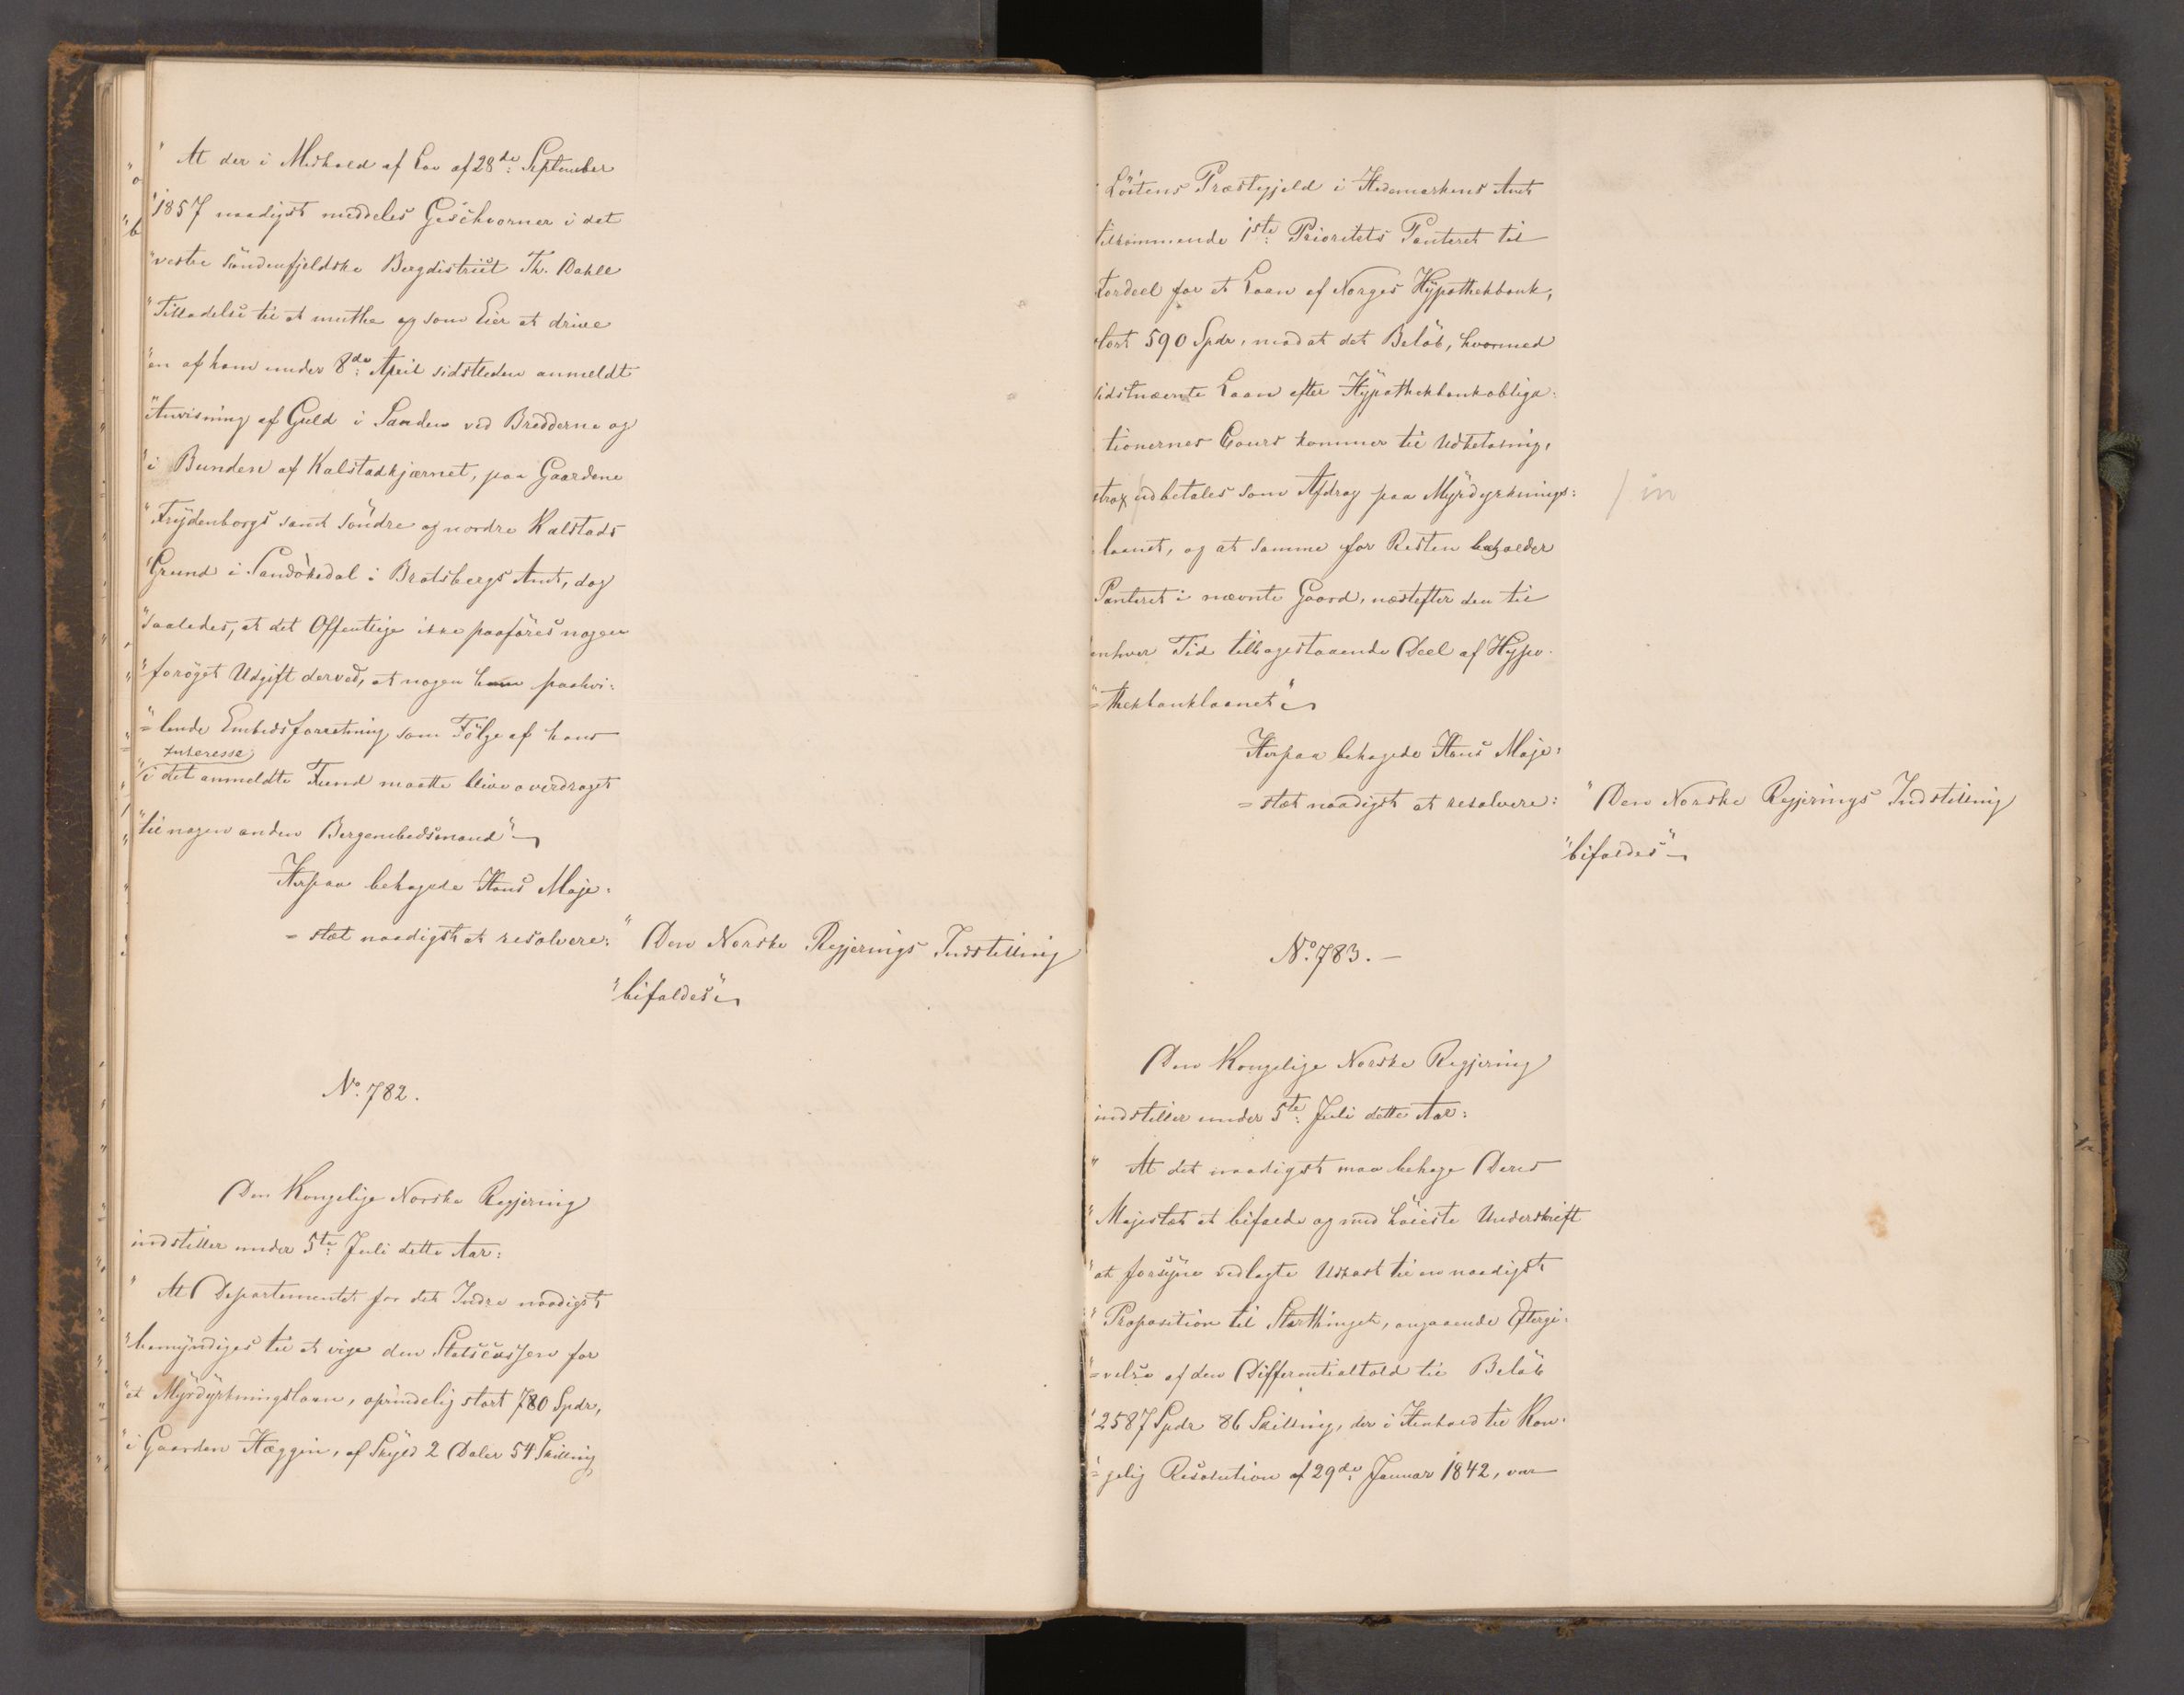 " At der i Medhold af Lov af 28de: September
"1857 naadigst meddeles Geschworner i det
"vestre söndenfjeldske Bergdistrict Th. Dahll
"Tilladelse til at muthe og som Eier at drive
"en af ham under 8de: April sidstleden anmeldt
"Anvisning af Guld i Sanden ved Bredderne og
"i Bunden af Kalstadkjærnet, paa Gaardene
"Frydenborgs samt söndre og nordre Kalstads
"Grund i Sandökedal i Bratsbergs Amt, dog
"saaledes, at det Offentlige ikke paaföres nogen
"foröget Udgift derved, at nogen ham paahvi=
"=lende Embedsforretning som Fölge af hans
Interesse
"i det anmeldte Fund maatte blive overdraget
"til nogen anden Bergembedsmand"
Herpaa behagede Hans Maje=
=stæt naadigst at resolvere: "Den Norske Regjerings Indstilling
"bifaldes"
No. 782.
Den Kongelige Norske Regjering
indstiller under 5te: Juli dette Aar:
" At Departementet for det Indre naadigst
"bemyndiges til at vige den Statscassen for
"et Myrdyrkningslaan, oprindelig stort 780 Spdr,
"i Gaarden Hæggin, af Skyld 2 Daler 54 Skilling
"Löitens Præstegjeld i Hedemarkens Amt
tilkommende 1ste: Prioritets Panteret til
Fordeel for et Laan af Norges Hypothekbank,
stort 590 Spdr, mod at det Belöb, hvormed
sidstnævnte Laan efter Hypothekbankobliga=
tionernes Cours kommer til Udbetaling,
strax udbetales som Afdrag paa Myrdyrknings= / in
laanet, og at samme for Resten beholder
Panteret i nævnte Gaard, næstefter den til
enhver Tid tilbagestaaende Deel af Hypo=
"=thekbanklaanet"
Herpaa behagede Hans Maje=
=stæt naadigst at resolvere: "Den Norske Regjerings Indstilling
"bifaldes"
No. 783.
Den Kongelige Norske Regjering
indstiller under 5te: Juli dette Aar:
" At det naadigst maa behage Deres
"Majestæt at bifalde og med höieste Underskrift
"at forsyne vedlagte Udkast til en naadigst
"Proposition til Storthinget, angaaende Eftergi=
"=velse af den Differentialtold til Belöb
"2587 Spdr 86 Skilling, der i Henhold til Kon=
"=gelig Resolution af 29de: Januar 1842, var